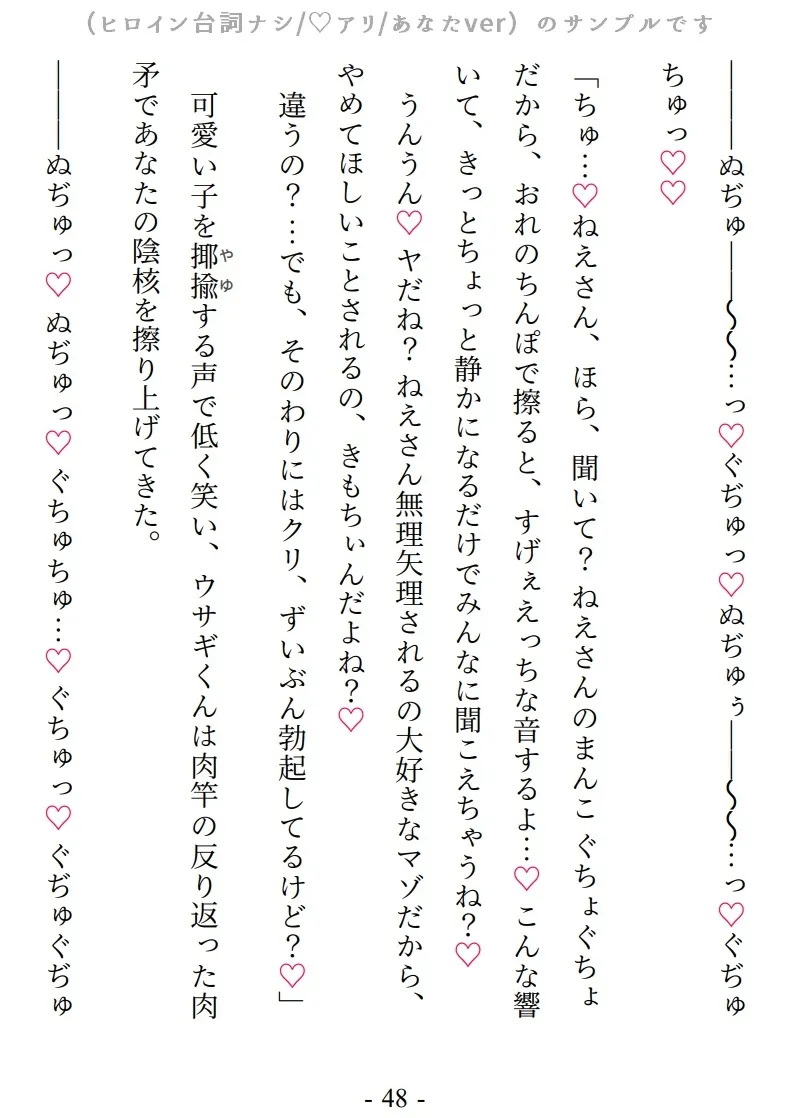 （ヒロイン台詞ナシ/♡アリ/あなたver）のサンプルです
―――ぬぢゅ――〜〜…っ♡ぐぢゅっ♡ぬぢゅぅ――〜〜…っ♡ぐぢゅ
ちゅっ♡♡
「ちゅ…♡ねえさん、ほら、聞いて？ねえさんのまんこぐちょぐちょ
だから、おれのちんぽで擦ると、すげぇえっちな音するよ…♡こんな響
いて、きっとちょっと静かになるだけでみんなに聞こえちゃうね？♡
うんうん♡ヤだね？ねえさん無理矢理されるの大好きなマゾだから、
やめてほしいことされるの、きもちぃんだよね？♡
違うの？…でも、そのわりにはクリ、ずいぶん勃起してるけど？♡」
可愛い子を揶揄やゆする声で低く笑い、ウサギくんは肉竿の反り返った肉
矛であなたの陰核を擦り上げてきた。
―――ぬぢゅっ♡ぬぢゅっ♡ぐちゅちゅ…♡ぐちゅっ♡ぐぢゅぐぢゅ
- 48 -